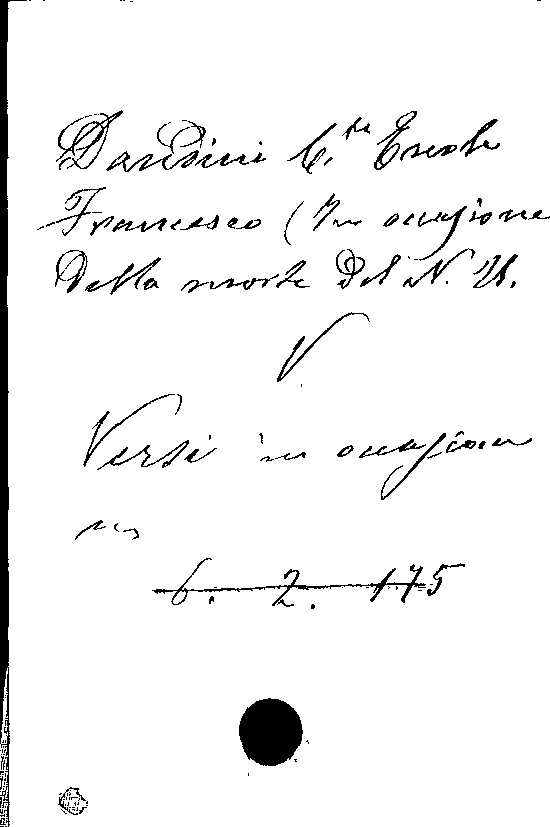 Dandini C.te Ercole
Francesco (In occasione
Della morte del N. H.
V.
Versi in occasione
6. 2. 175